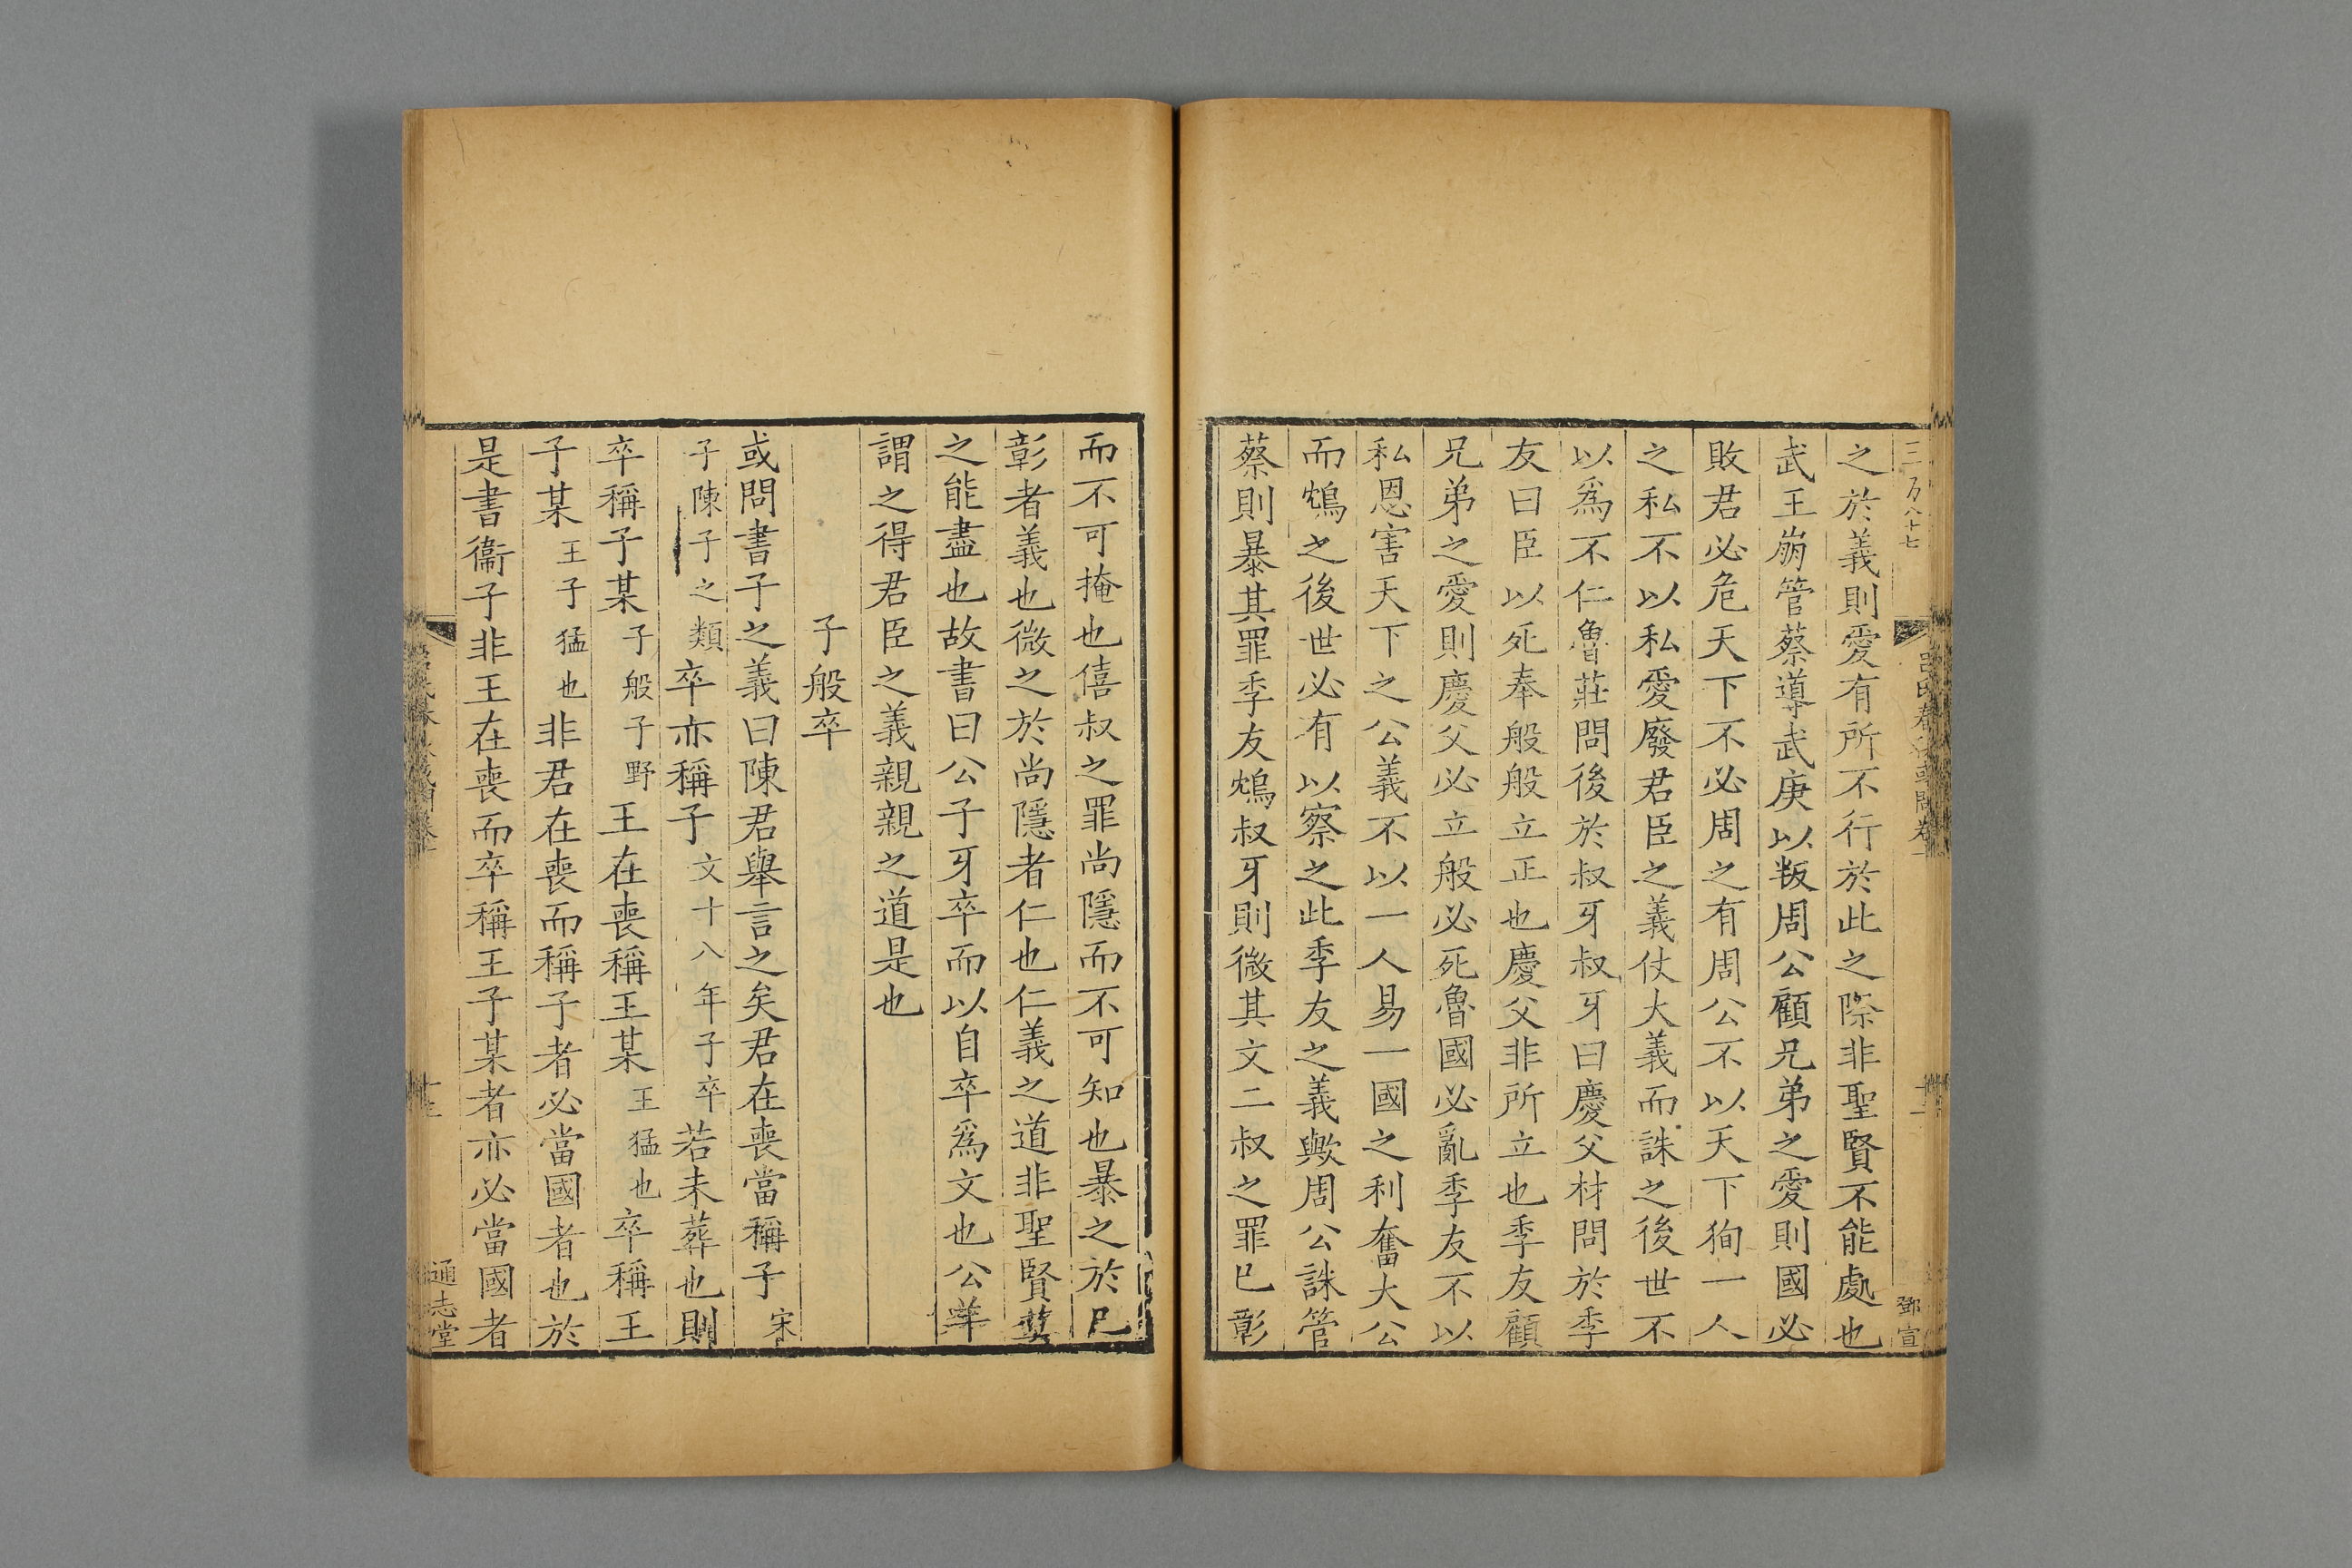 三百八十七
鄧宣
之於義則愛有所不行於此之際非聖賢不能處也
武王崩管蔡導武庚以叛周公顧兄弟之愛則國必
敗君必危天下不必周之有周公不以天下狥一人
之私不以私愛廢君臣之義仗大義而誅之後世不
以爲不仁魯莊問後於叔牙叔牙曰慶父材問於季
友曰臣以死奉般般立正也慶父非所立也季友顧
兄弟之愛則慶父必立般必死魯國必亂季友不以
私恩害天下之公義不以一人易一國之利奮大公
而鴆之後世必有以察之此季友之義歟周公誅管
蔡則暴其罪季友鴆叔牙則微其文二叔之罪已彰
而不可掩也僖叔之罪尚隱而不可知也暴之於已
彰者義也微之於尚隱者仁也仁義之道非聖賢莫
之能盡也故書曰公子牙卒而以自卒爲文也公羊
謂之得君臣之義親親之道是也
子般卒
或問書子之義曰陳君舉言之矣君在喪當稱子宋
子陳子之類卒亦稱子文十八年子卒若未葬也則
卒稱子某子般子野王在喪稱王某王猛也卒稱王
子某王子猛也非君在喪而稱子者必當國者也於
是書衞子非王在喪而卒稱王子某者亦必當國者
通志堂